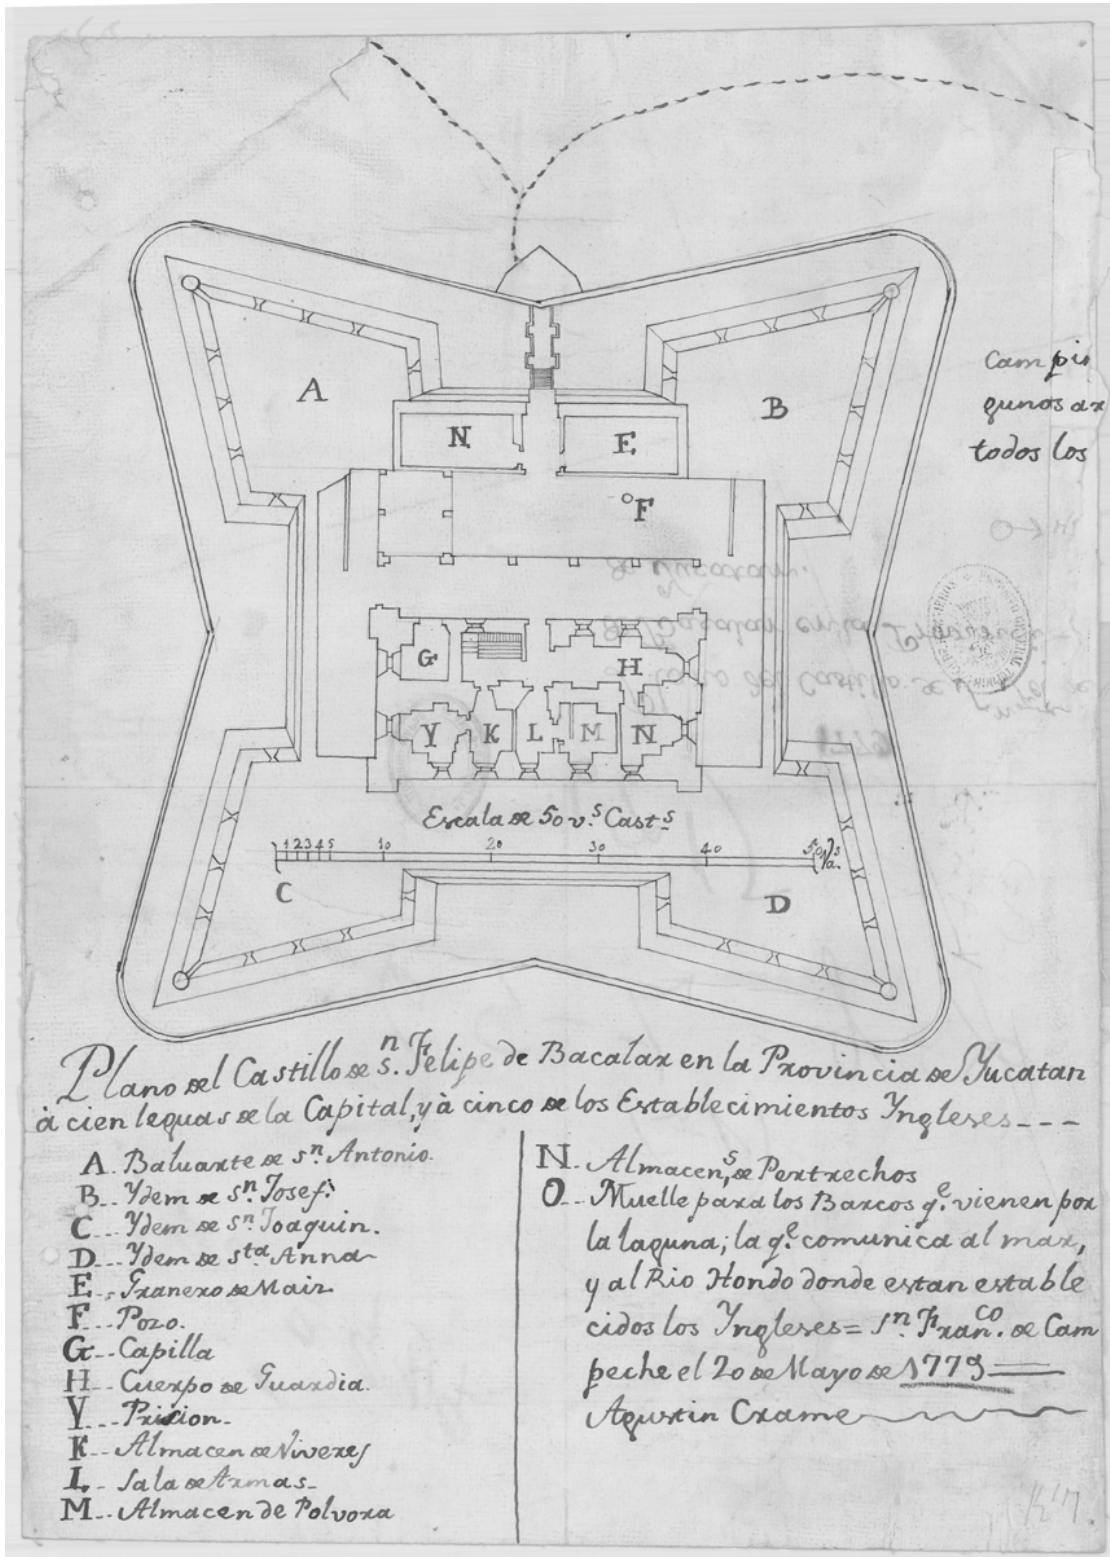 Campi
gunos ar
todos los
A
B
N
E
F
G
H
Y
K
L
M
N
Escala de 50 v.s Cast.s
1 2 3 4 5 10 20 30 40 50 Va.s
C
D
Plano del Castillo de S.n Felipe de Bacalar en la Provincia de Yucatan
à cien leguas de la Capital, y à cinco de los Establecimientos Yngleses---
A. Baluarte de Sn. Antonio.
B.. Ydem de Sn. Josef.
C.. Ydem de Sn. Joaquin.
D... Ydem de Sta. Anna
E.. Granero de Maiz
F... Pozo.
G.. Capilla
H.. Cuerpo de Guardia.
Y... Prision.
K.. Almacen de Viveres
L.. Sala de Armas.
M.. Almacen de Polvora
N. Almacen,s de Pertrechos
O.. Muelle para los Barcos q.e vienen por
la laguna; la q.e comunica al mar,
y al Rio Hondo donde estan estable
cidos los Yngleses= Sn. Fran.co de Cam
peche el 20 de Mayo de 1779
Agustin Crame